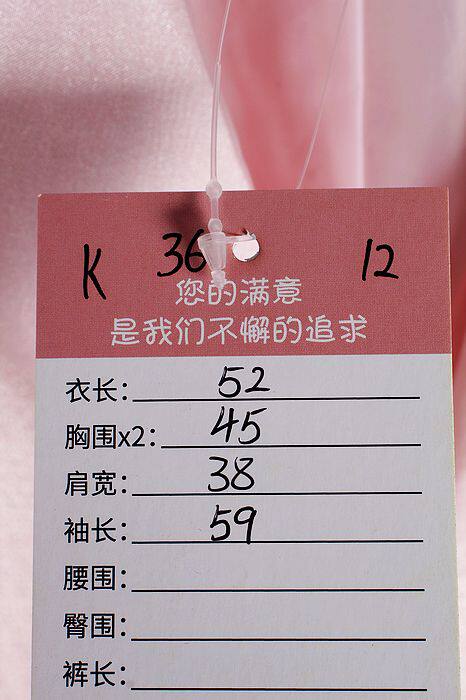 K 36 12
您的满意
是我们不懈的追求
衣长: 52
胸围x2: 45
肩宽: 38
袖长: 59
腰围:
臀围:
裤长: